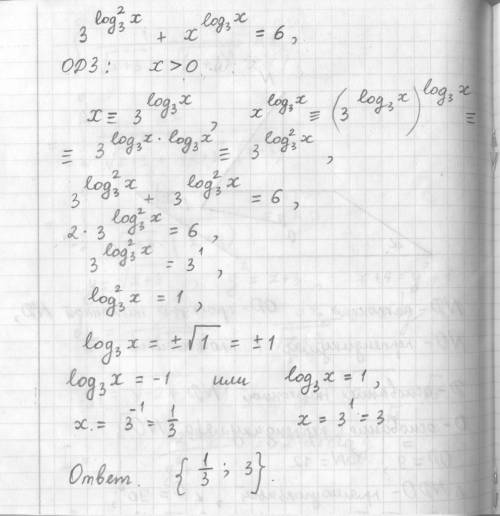 3^{log₃²x} + x^{log₃x} = 6,
ОДЗ: x > 0
x ≡ 3^{log₃x}, x^{log₃x} ≡ (3^{log₃x})^{log₃x} ≡
≡ 3^{log₃x · log₃x} ≡ 3^{log₃²x},
3^{log₃²x} + 3^{log₃²x} = 6,
2 · 3^{log₃²x} = 6,
3^{log₃²x} = 3¹,
log₃²x = 1,
log₃x = ±√1 = ±1
log₃x = -1 или log₃x = 1,
x = 3⁻¹ = 1/3 x = 3¹ = 3
Ответ. {1/3; 3}.